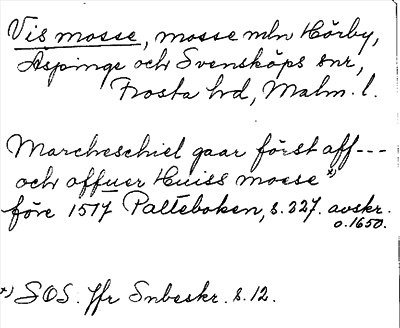 Vis mosse, mosse mln Hörby,
Äspinge och Svensköps snr,
Frosta hd, Malm. l.
Marcheschiel gaar först aff ---
och offuer Huiss moese *)
före 1517 Palteboken, s. 327. avskr.
o. 1650.
*) SOS. Jfr Snbeskr. s. 12.